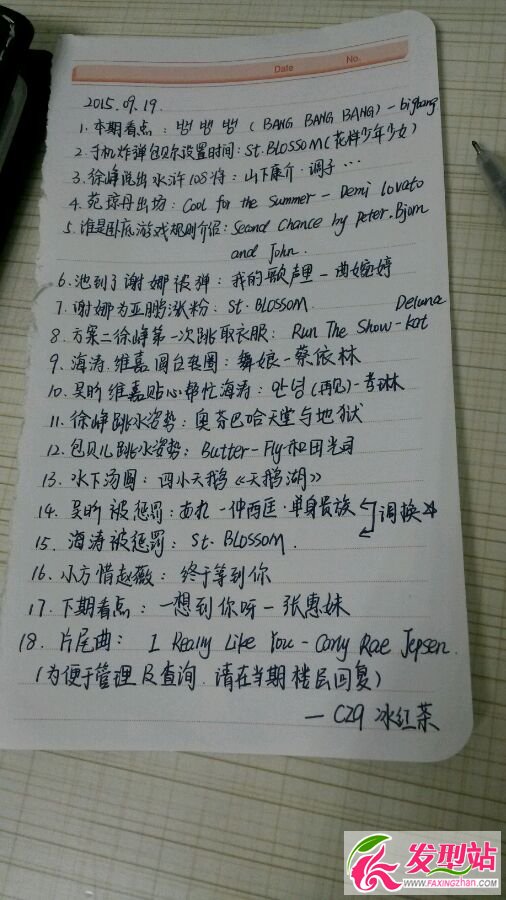 Date No.
2015.09.19.
1. 本期看点：뱅 뱅 뱅 (BANG BANG BANG) - bigbang
2. 手机炸弹包贝尔设置时间：St.BLOSSOM(花样少年少女)
3. 徐峥说出水浒108将：山下康介·调子…
4. 苑琼丹出场：Cool for the Summer - Demi Lovato
5. 谁是卧底游戏规则介绍：Second Chance by Peter.Bjorn
and John.
6. 池到了谢娜被弹：我的歌声里 - 曲婉婷
7. 谢娜为亚鹏涨粉：St.BLOSSOM. Deluna
8. 方案二徐峥第一次跳取衣服：Run The Show - Kat
9. 海涛.维嘉圆台突围：舞娘 - 蔡依林
10. 吴昕维嘉贴心帮忙海涛：안녕(再见) - 孝琳
11. 徐峥跳水姿势：奥芬巴哈天堂与地狱
12. 包贝儿跳水姿势：Butter-Fly 和田光司
13. 水下汤圆：四小天鹅《天鹅湖》
14. 吴昕被惩罚：あれ - 仲西匡·单身贵族
调换
15. 海涛被惩罚：St.BLOSSOM.
16. 小方惜赵薇：终于等到你
17. 下期看点：一想到你呀 - 张惠妹
18. 片尾曲：I Really Like You - Carly Rae Jepsen.
(为便于管理及查询.请在当期楼层回复)
— CZ9 冰红茶
发型站
WWW.FAXINGZHAN.COM